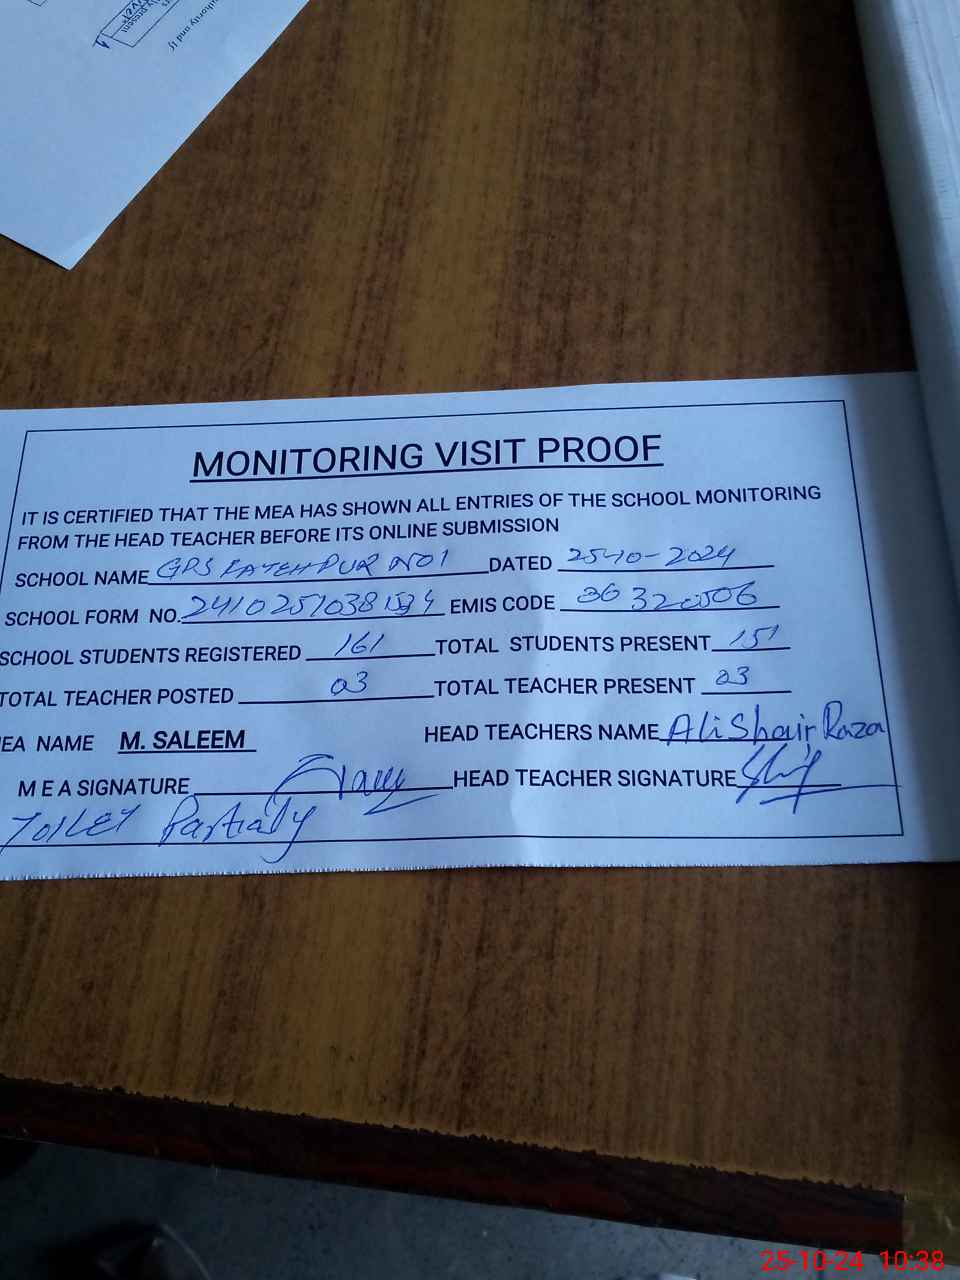 uthority and If
ly present
MONITORING VISIT PROOF
IT IS CERTIFIED THAT THE MEA HAS SHOWN ALL ENTRIES OF THE SCHOOL MONITORING
FROM THE HEAD TEACHER BEFORE ITS ONLINE SUBMISSION
SCHOOL NAME GPS FATEHPUR NO1 DATED 25-10-2024
SCHOOL FORM NO. EMIS CODE
SCHOOL STUDENTS REGISTERED 161 TOTAL STUDENTS PRESENT 151
TOTAL TEACHER POSTED 03 TOTAL TEACHER PRESENT 03
EA NAME M. SALEEM HEAD TEACHERS NAME Ali Shair Raza
M E A SIGNATURE HEAD TEACHER SIGNATURE
TOILET Partialy
25-10-24 10:38